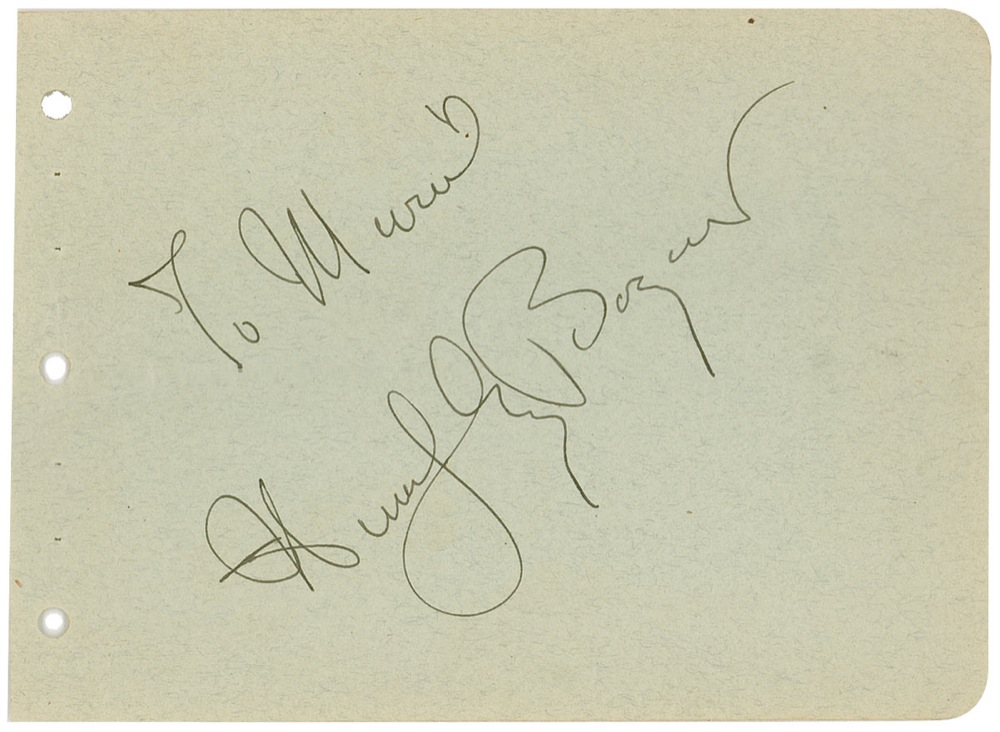 To Muriel
Humphrey Bogart